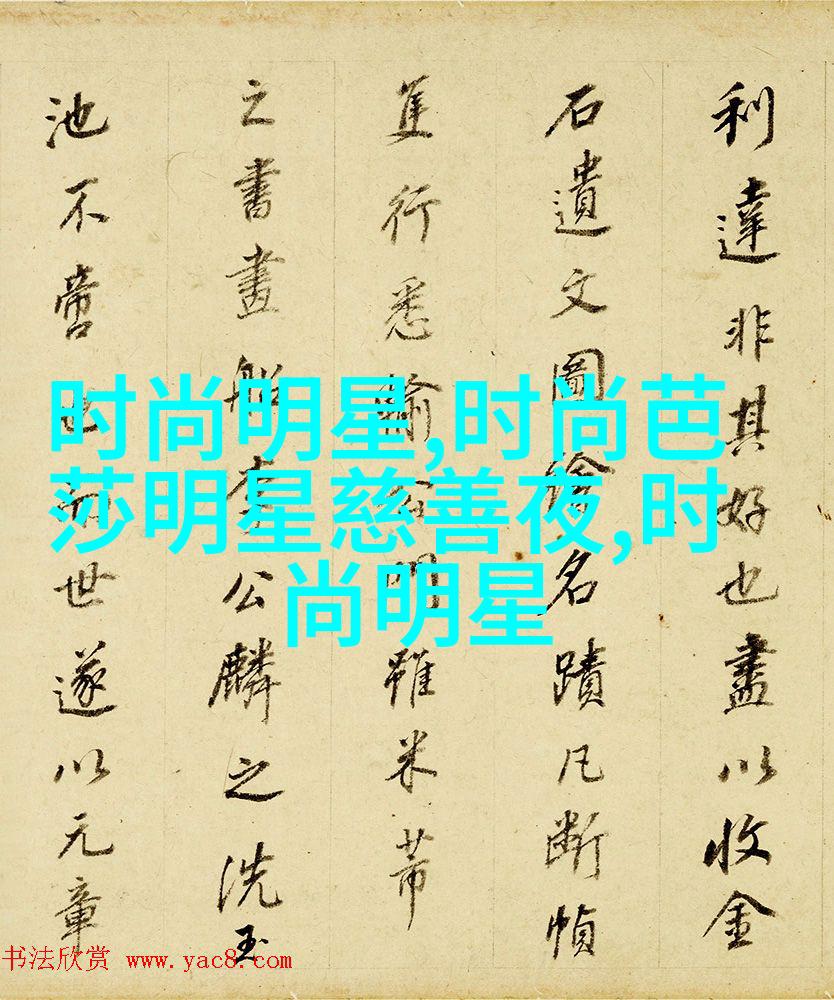 利達非其好也盡以收金
石遺文圖繪名蹟凡斷幀
隻行悉輸門雖米芾
之書畫船李公麟之洗玉
池不啻也而世遂以元章
时尚明星,时尚芭
莎明星慈善夜,时
尚明星
书法欣赏 www.yac8.com